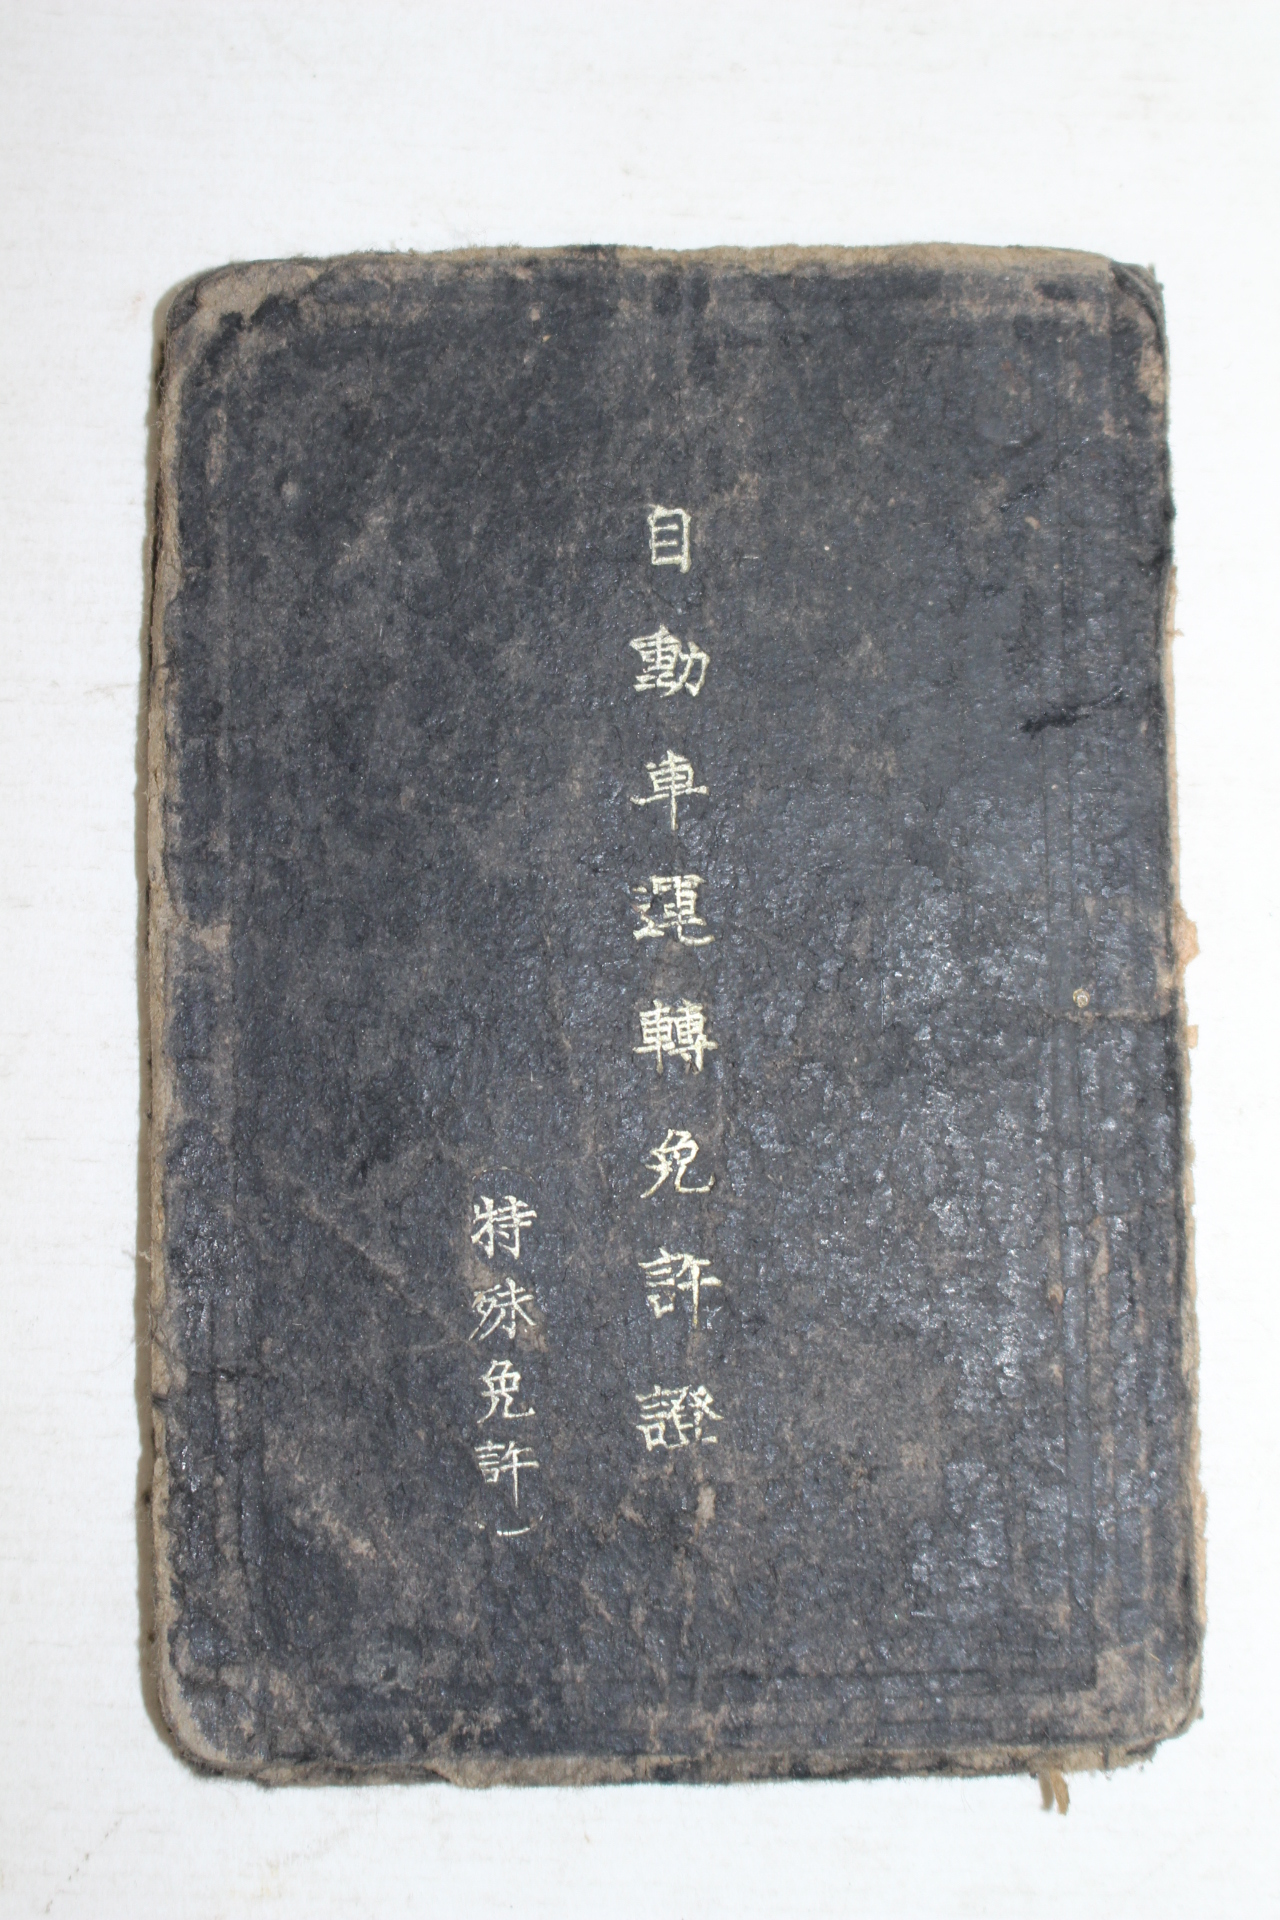 自動車運轉免許證
（特殊免許）